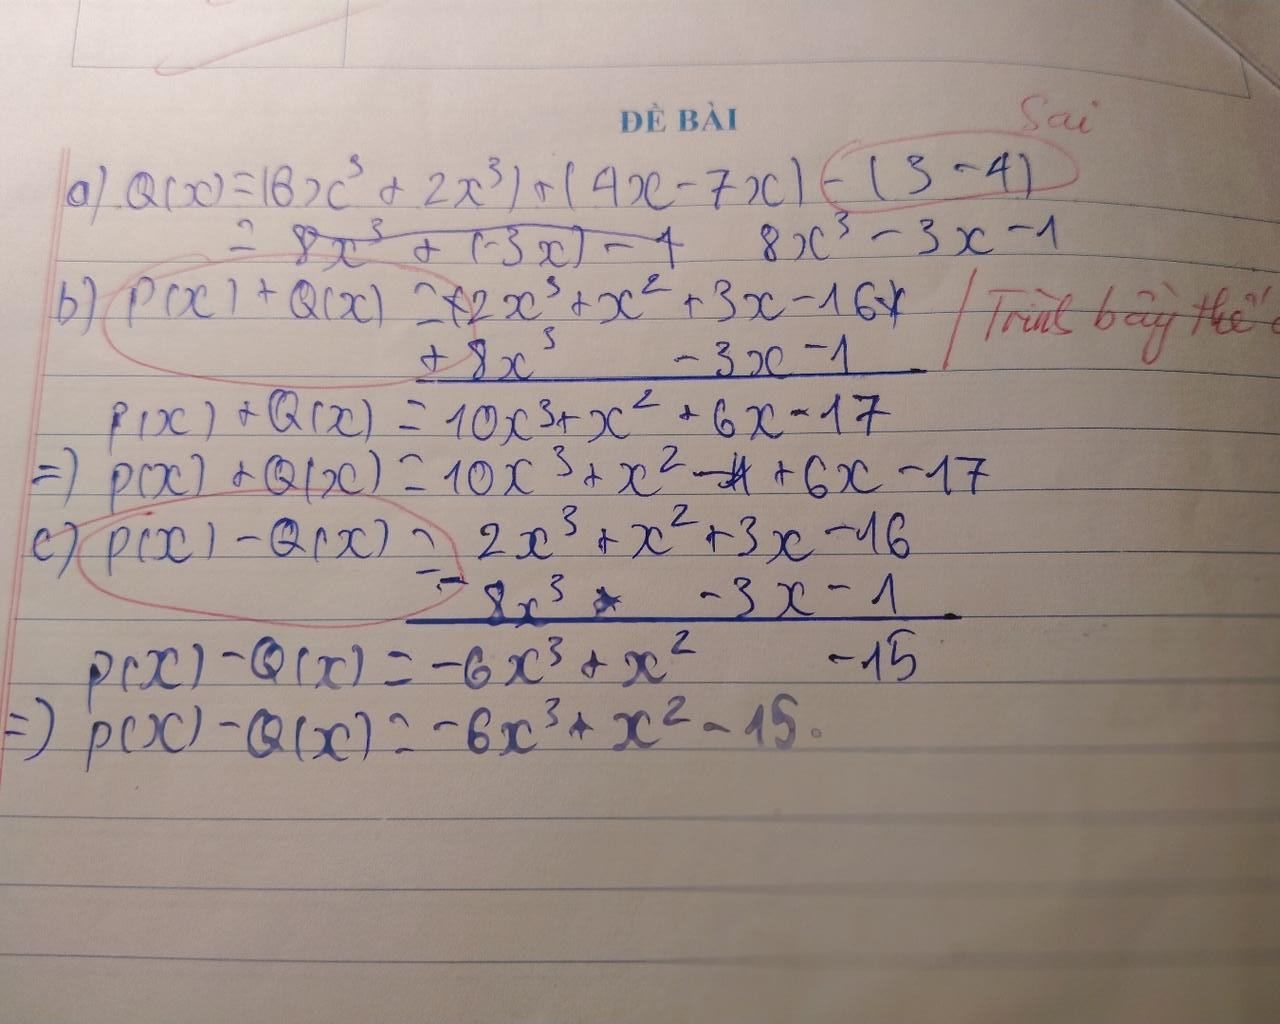 Sai
ĐỀ BÀI
a) Q(x) = (6x³ + 2x³) + (4x - 7x) - (3 - 4)
= 8x³ + (-3x) - 1 8x³ - 3x - 1
b) P(x) + Q(x) = 2x³ + x² + 3x - 16
+ 8x³ - 3x - 1
Trình bày thế
P(x) + Q(x) = 10x³ + x² + 6x - 17
=) P(x) + Q(x) = 10x³ + x² + 6x - 17
c) P(x) - Q(x) = 2x³ + x² + 3x - 16
- 8x³ - 3x - 1
P(x) - Q(x) = -6x³ + x² - 15
=) P(x) - Q(x) = -6x³ + x² - 15.